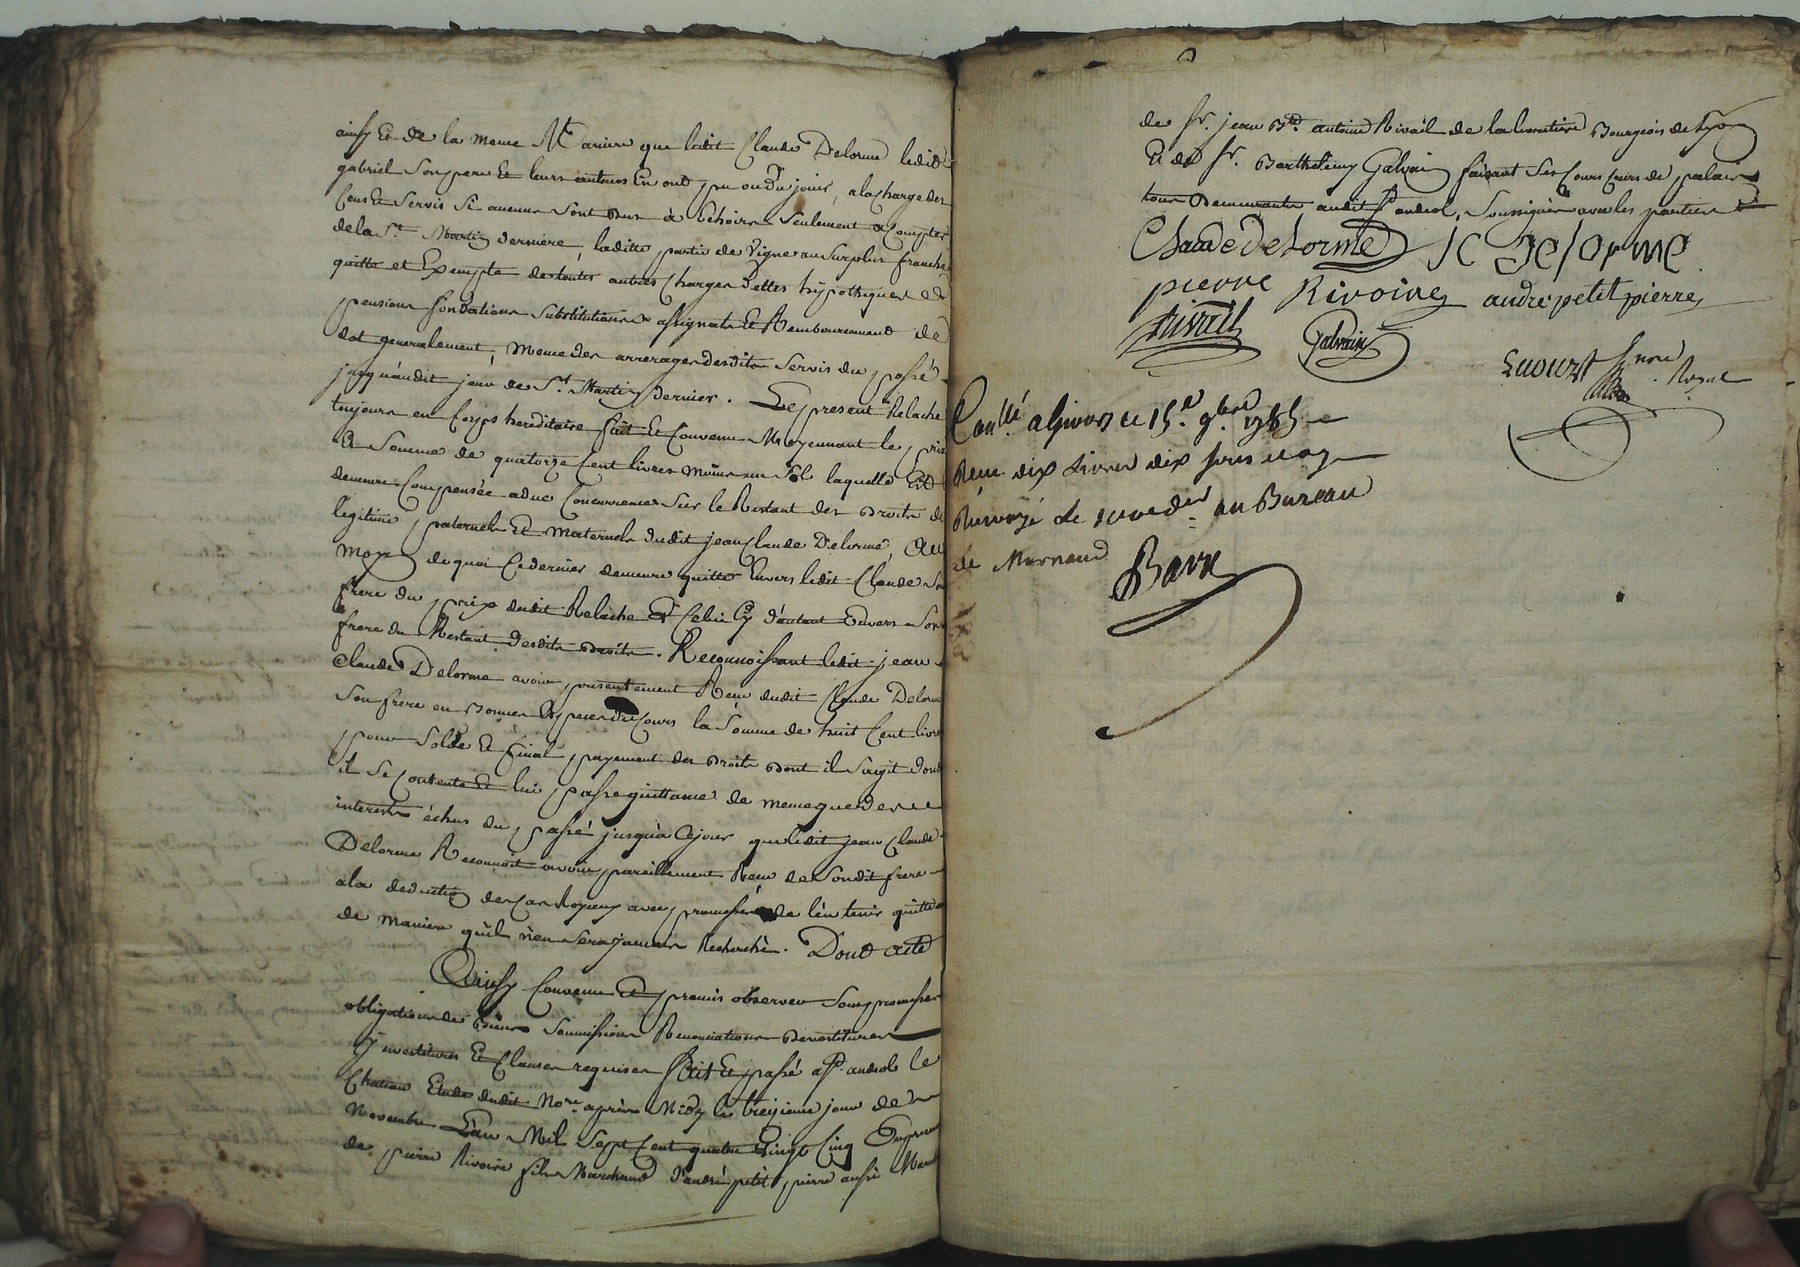 ainsy Et de la meme Maniere que ledit Claude Delorme ledit
gabriel Son pere Et leurs auteurs En ont pu ou du jouir, a la charge des
Cens Et Servis Si aucuns Sont dus à échoir Seulement a Compter
de la St. Martin derniere, laditte partie de Vigne au Surplus franche
quitte et Exempte de toutes autres Charges dettes hypotheques et
pensions fondations Substitutions assignats Et Remboursement de
dot generalement, Meme des arrerages desdits Servis du passé
jusqu'audit jour de St. Martin dernier. Le present Relache
toujours en Corps hereditaire fait Et Convenu Moyennant le prix
Et Somme de quatorze Cent livres moins un Sol laquelle Est
demeure Compensée a due Concurrence Sur le Restant des Droits de
legitime paternels Et Maternels dudit jean Claude Delorme, Au
Moyen de quoi Ce dernier demeure quitte Envers ledit Claude Son
frere du prix dudit Relache Et Celui Cy d'autant Envers Son
frere du Restant desdits Droits. Reconnoissant ledit jean
Claude Delorme avoir presentement Reçu dudit Claude Delorme
Son frere en Bonnes Especes du Cours la Somme de huit Cent livres
pour Solde Et final payement des Droits dont il S'agit dont
il Se Contente Et lui passe quittance de meme que des
interests échus du passé jusqu'à Ce jour que ledit jean Claude
Delorme Reconnoit avoir pareillement Reçu de Son dit frere
a la deduction des Cas Royaux avec promesse de l'en tenir quitte
de Maniere qu'il n'en Sera jamais Recherché. Dont acte
Ainsy Convenu Et promis observer Sous promesses
obligations de Biens Soumissions Renonciations Devestitures
Investitures Et Clauses requises fait Et passé a St. andeol le
Chateau Etude dudit Nore. après Midy le treizieme jour de
Novembre L'an Mil Sept Cent quatre Vingt Cinq En presence
de pierre Rivoire fils Marchand d'andré petit pierre aussi March
de Sr. jean Bte. antoine Rivail de la Bourgeois de Lyon
Et de Sr. Barthelemy Galvain faisant Ses Cours de palais
tous Demeurants audit St andeol, Soussignés avec les parties
Claude Delorme JC Delorme
pierre Rivoire andré petit pierre
Rivail Galvain
Nore. Royal
Conllé a Givors ce 15.e 9.bre 1785
Reçu dix livres dix sous
Renvoyé le au Bureau
de Mornand